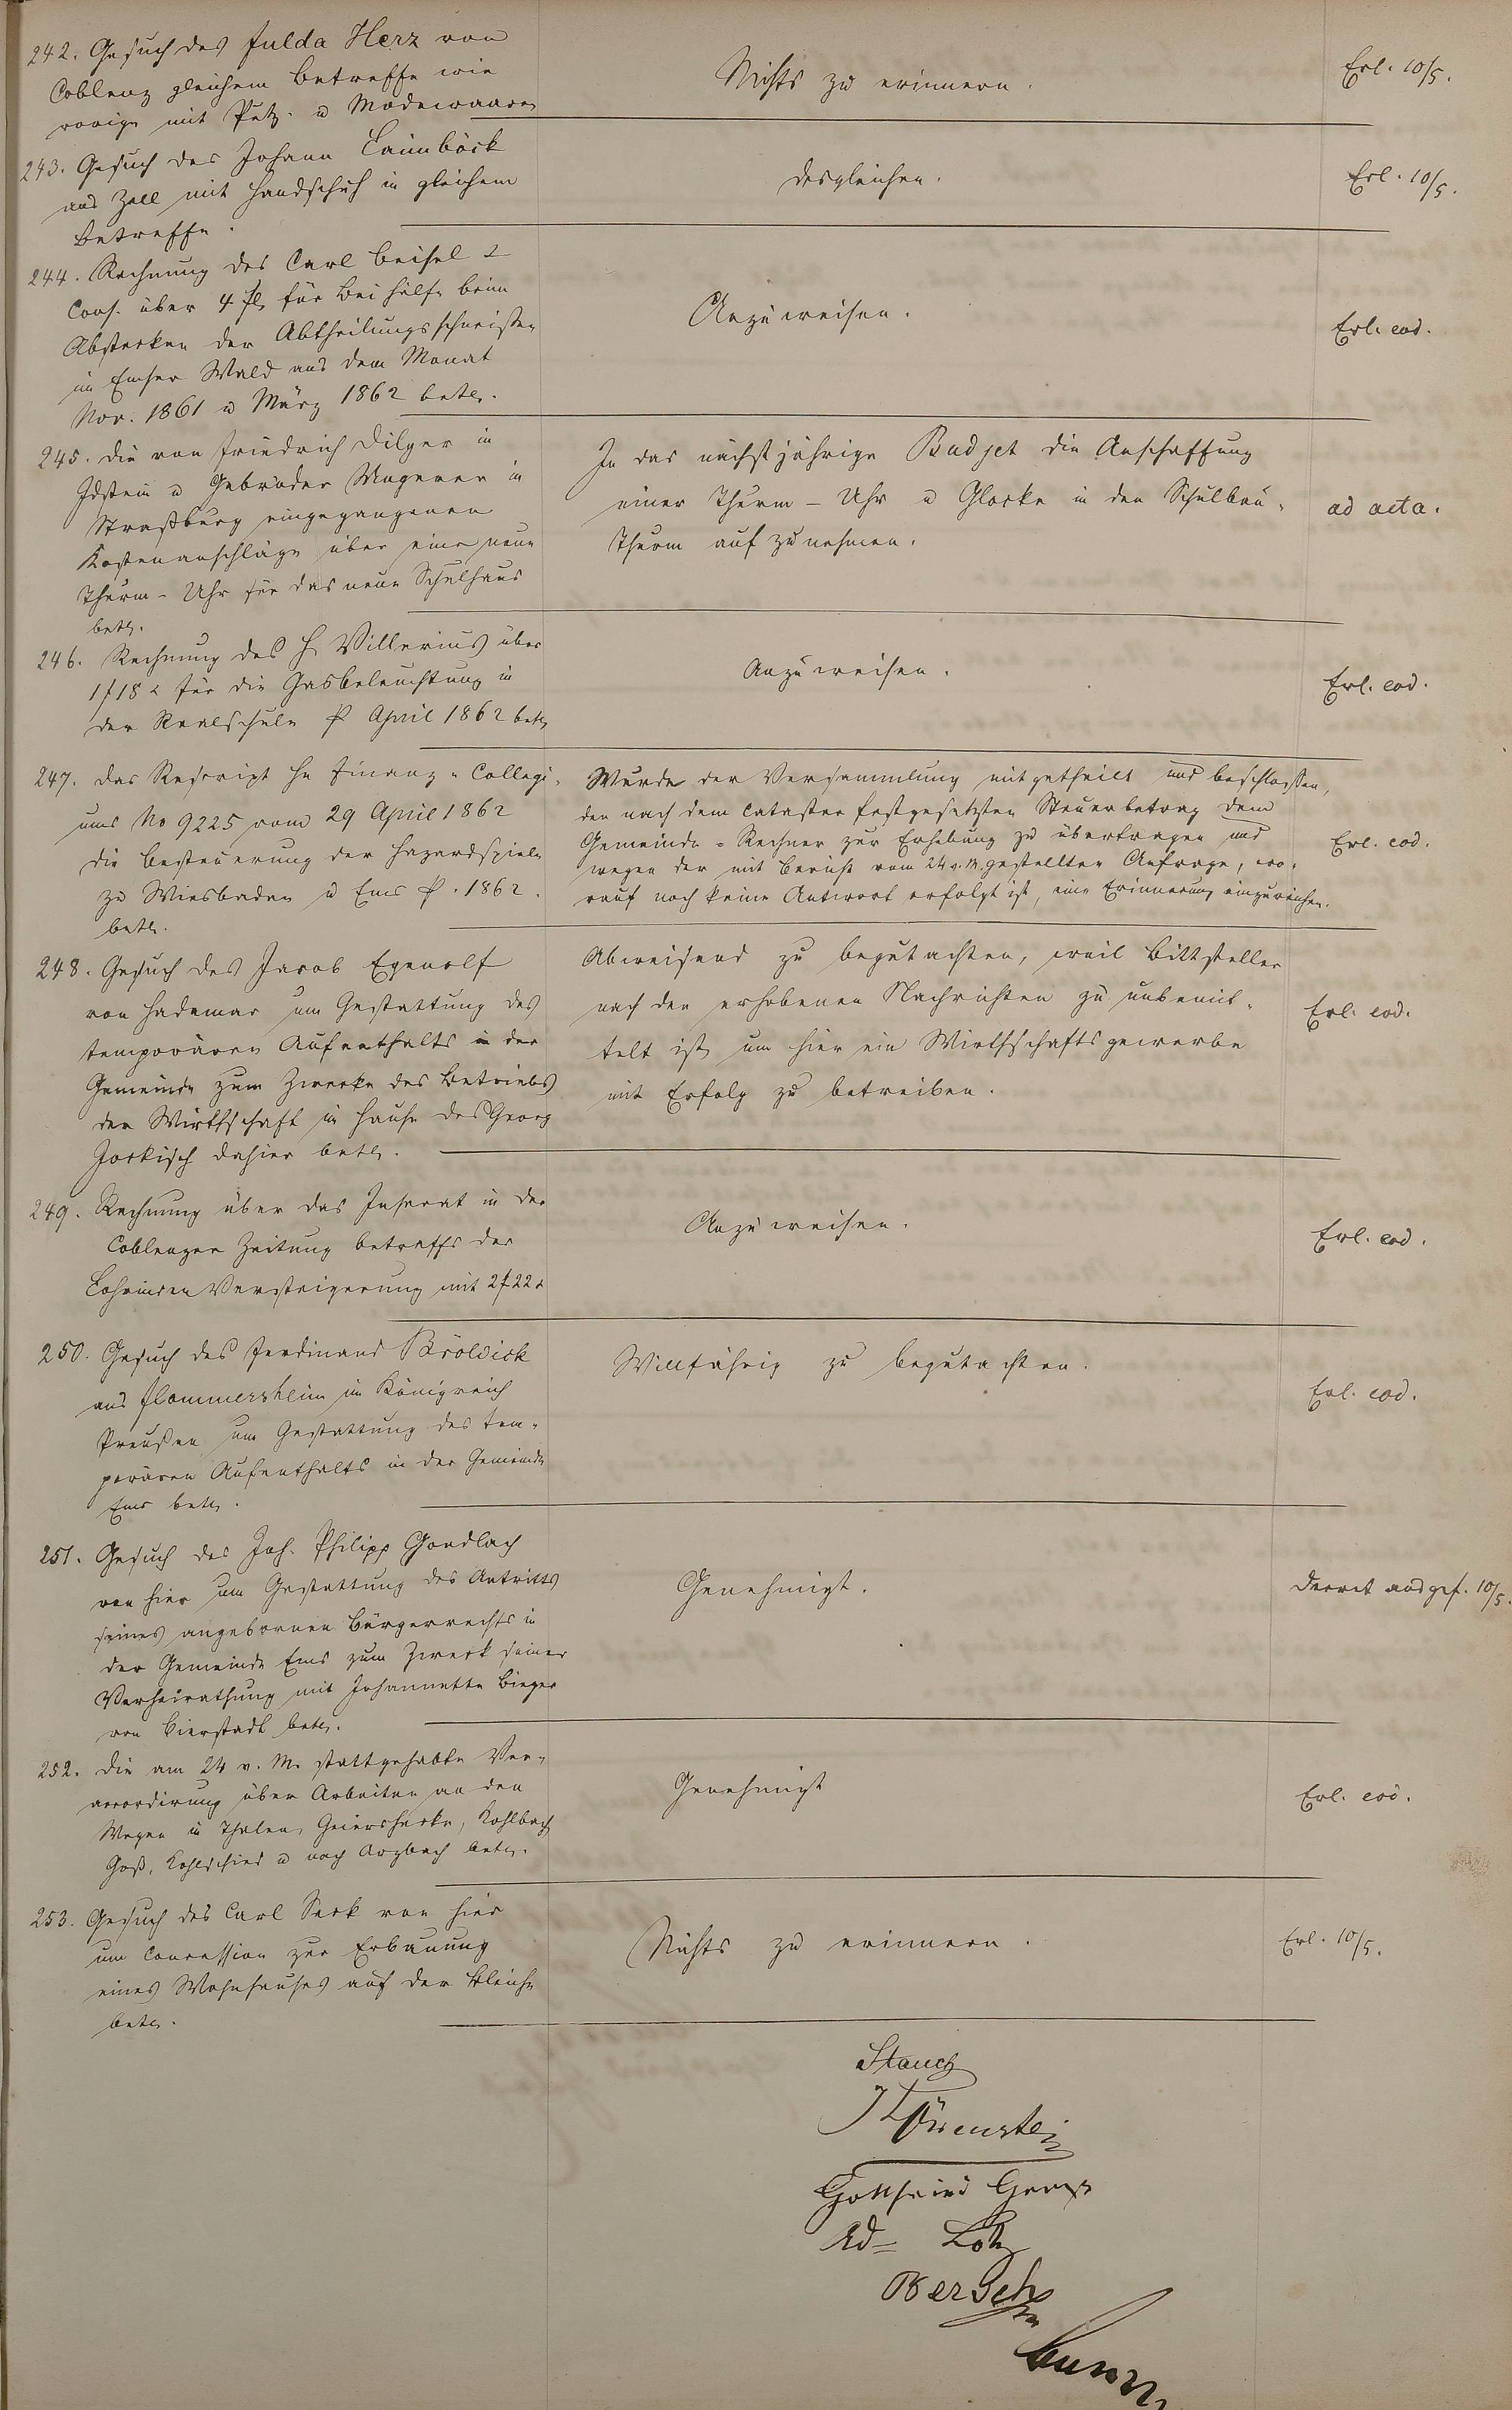 242. Gesuch des Fulda Herz von
Coblenz gleichem Betreffe wie
vorige mit Putz- u Modewaaren
Nichts zu erinnern.
Erl. 10/5.
243. Gesuch des Johann Laimböck
aus Zell mit Handschuh in gleichem
Betreffe.
desgleichen.
Erl. 10/5.
244. Rechnung des Carl Beisel &
Cons. über 4 fl für Beihülfe beim
Abstecken der Abtheilungsschneißen
im Emser Wald aus dem Monat
Nov. 1861 u März 1862 betr.
Anzuweisen.
Erl. eod.
245. Die von Friedrich Dilger in
Idstein u Gebrüder Ungerer in
Straßburg eingegangenen
Kostenanschläge über eine neue
Thurm-Uhr für das neue Schulhaus
betr.
In das nächstjährige Budjet die Anschaffung
einer Thurm-Uhr u Glocke in den Schulbau-
Thurm aufzunehmen.
ad acta.
246. Rechnung des H Villerius über
1 f 18 x für die Gasbeleuchtung in
der Realschule P April 1862 betr
Anzuweisen.
Erl. eod.
247. Das Rescript Hz Finanz-Collegi-
ums No 9225 vom 29 April 1862
die Besteuerung der Hazardspiele
zu Wiesbaden u Ems P. 1862.
betr.
Wurde der Versammlung mitgetheilt und beschlossen,
den nach dem Cataster festgesetzten Steuerbetrag dem
Gemeinde-Rechner zur Erhebung zu übertragen und
wegen der mit Bericht vom 24 v. M. gestellten Anfrage, wo-
rauf noch keine Antwort erfolgt ist, eine Erinnerung einzureichen.
Erl. eod.
248. Gesuch des Jacob Egenolf
von Hadamar um Gestattung des
temporären Aufenthalts in der
Gemeinde zum Zwecke des Betriebs
der Wirthschaft im Hause des Georg
Jorkisch dahier betr.
Abweisend zu begutachten, weil Bittsteller
nach den erhobenen Nachrichten zu unbemit-
telt ist, um hier ein Wirthschaftsgewerbe
mit Erfolg zu betreiben.
Erl. eod.
249. Rechnung über das Inserat in der
Coblenzer Zeitung betreffs der
Lohrinden Versteigerung mit 2 f 22 x
Anzuweisen.
Erl. eod.
250. Gesuch des Ferdinand Bröldick
aus Flammersheim im Königreich
Preußen um Gestattung des tem-
porären Aufenthalts in der Gemeinde
Ems betr.
Willfährig zu begutachten.
Erl. eod.
251. Gesuch des Joh. Philipp Gondlach
von hier um Gestattung des Antritts
seines angebornen Bürgerrechts in
der Gemeinde Ems zum Zweck seiner
Verheirathung mit Johannette Bieger
von Bierstadt betr.
Genehmigt.
Decret ausgef. 10/5.
252. Die am 24 v. M. stattgehabte Ver-
accordirung über Arbeiten an den
Wegen in Thalen, Geiershecke, Kohlbach
Goß, Kohlschied u nach Arzbach betr.
Genehmigt
Erl. eod.
253. Gesuch des Carl Sack von hier
um Concession zur Erbauung
eines Wohnhauses auf der Bleiche
betr.
Nichts zu erinnern.
Erl. 10/5.
Stauch
Gottfried
Ad= Lotz